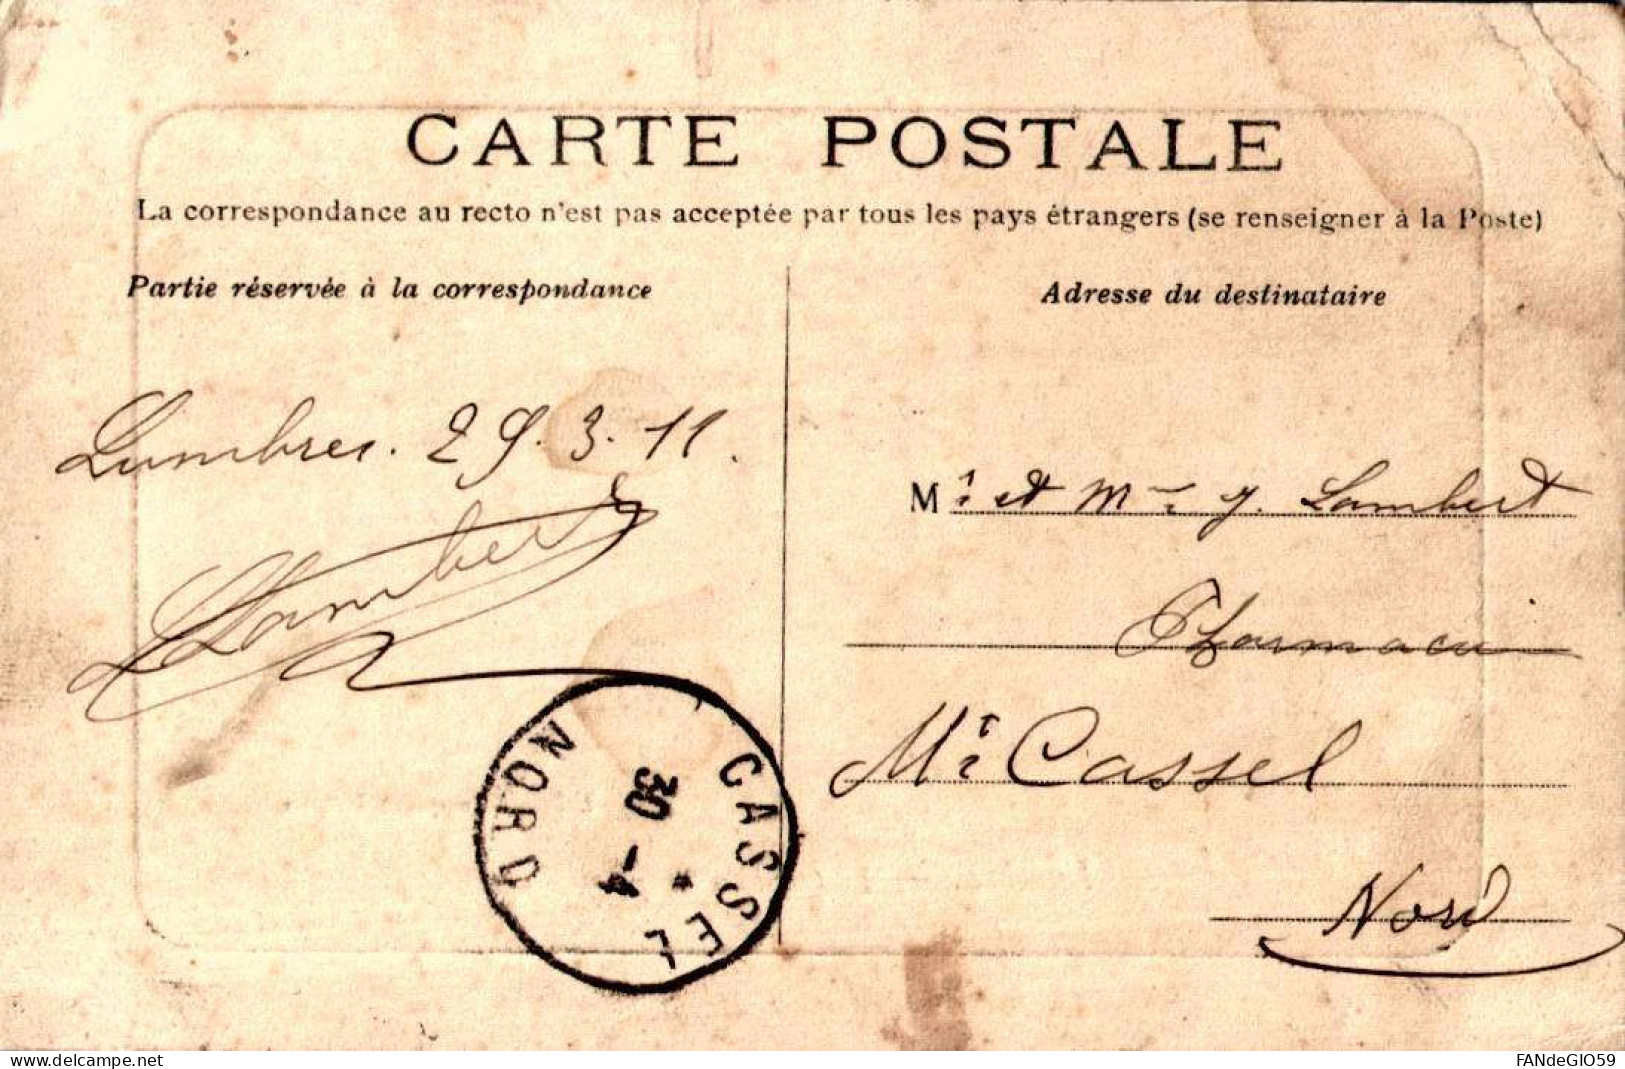 CARTE POSTALE
La correspondance au recto n'est pas acceptée par tous les pays étrangers (se renseigner à la Poste)
Partie réservée à la correspondance
Adresse du destinataire
Lumbres. 29.3.11.
Lambert
Mr et Mme J. Lambert
Pharmacien
Mt Cassel
Nord
CASSEL
30 - 4
NORD
www.delcampe.net
FANdeGIO59